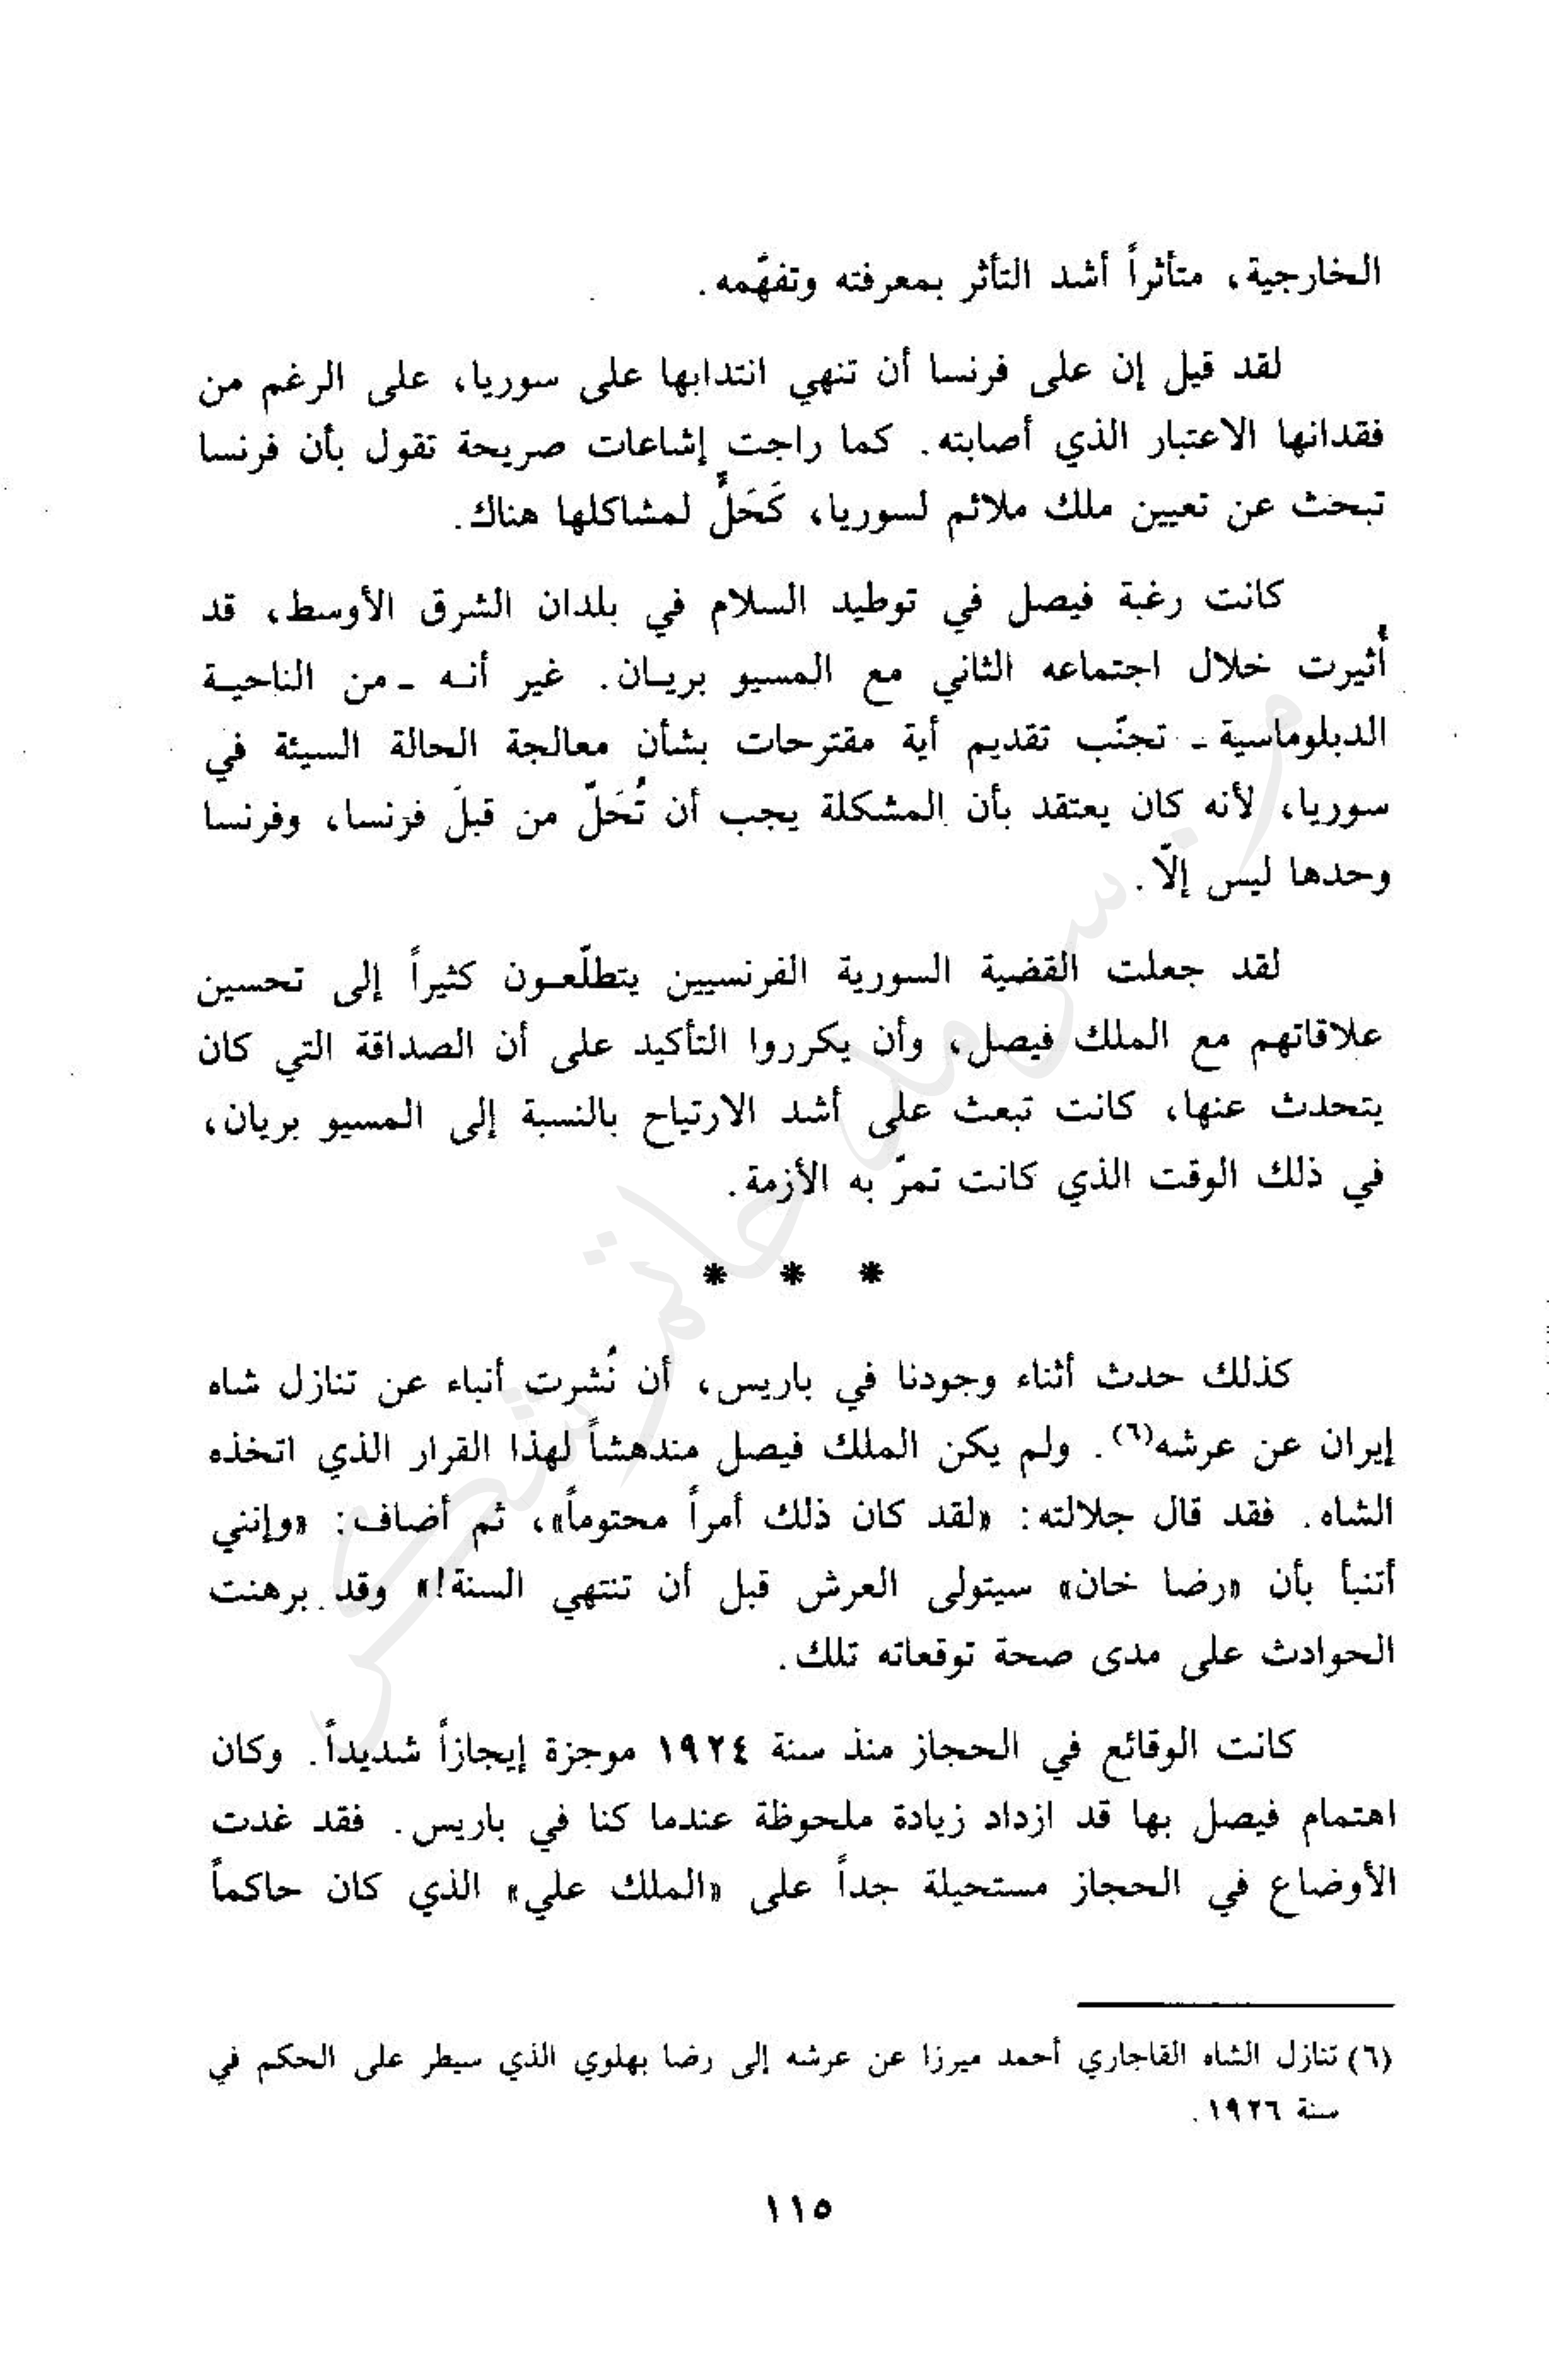 الخارجية، متأثراً أشد التأثر بمعرفته وتفهّمه.
لقد قيل إن على فرنسا أن تنهي انتدابها على سوريا، على الرغم من
فقدانها الاعتبار الذي أصابته. كما راجت إشاعات صريحة تقول بأن فرنسا
تبحث عن تعيين ملك ملائم لسوريا، كَحَلٍّ لمشاكلها هناك.
كانت رغبة فيصل في توطيد السلام في بلدان الشرق الأوسط، قد
أُثيرت خلال اجتماعه الثاني مع المسيو بريـان. غير أنـه ـ من الناحيـة
الدبلوماسية ـ تجنّب تقديم أية مقترحات بشأن معالجة الحالة السيئة في
سوريا، لأنه كان يعتقد بأن المشكلة يجب أن تُحَلّ من قبلَ فرنسا، وفرنسا
وحدها ليس إلاّ.
لقد جعلت القضية السورية الفرنسيين يتطلّعـون كثيراً إلى تحسين
علاقاتهم مع الملك فيصل، وأن يكرروا التأكيد على أن الصداقة التي كان
يتحدث عنها، كانت تبعث على أشد الارتياح بالنسبة إلى المسيو بريان،
في ذلك الوقت الذي كانت تمرّ به الأزمة.
* * *
كذلك حدث أثناء وجودنا في باريس، أن نُشرت أنباء عن تنازل شاه
إيران عن عرشه(٦). ولم يكن الملك فيصل مندهشاً لهذا القرار الذي اتخذه
الشاه. فقد قال جلالته: «لقد كان ذلك أمراً محتوماً»، ثم أضاف: «وإنني
أتنبأ بأن «رضا خان» سيتولى العرش قبل أن تنتهي السنة!» وقد برهنت
الحوادث على مدى صحة توقعاته تلك.
كانت الوقائع في الحجاز منذ سنة ١٩٢٤ موجزة إيجازاً شديداً. وكان
اهتمام فيصل بها قد ازداد زيادة ملحوظة عندما كنا في باريس. فقد غدت
الأوضاع في الحجاز مستحيلة جداً على «الملك علي» الذي كان حاكماً
(٦) تنازل الشاه القاجاري أحمد ميرزا عن عرشه إلى رضا بهلوي الذي سيطر على الحكم في
سنة ١٩٢٦.
١١٥